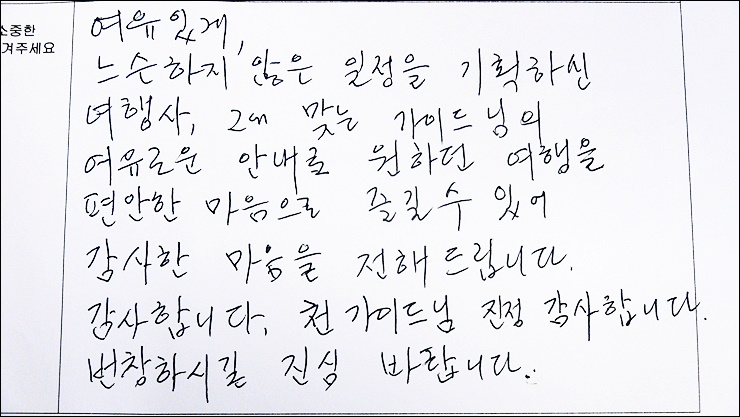 소중한
겨주세요
여유있게,
느슨하지 않은 일정을 기획하신
여행사, 그에 맞는 가이드님의
여유로운 안내로 원하던 여행을
편안한 마음으로 즐길수 있어
감사한 마음을 전해드립니다.
감사합니다. 천 가이드님 진정 감사합니다.
번창하시길 진심 바랍니다.